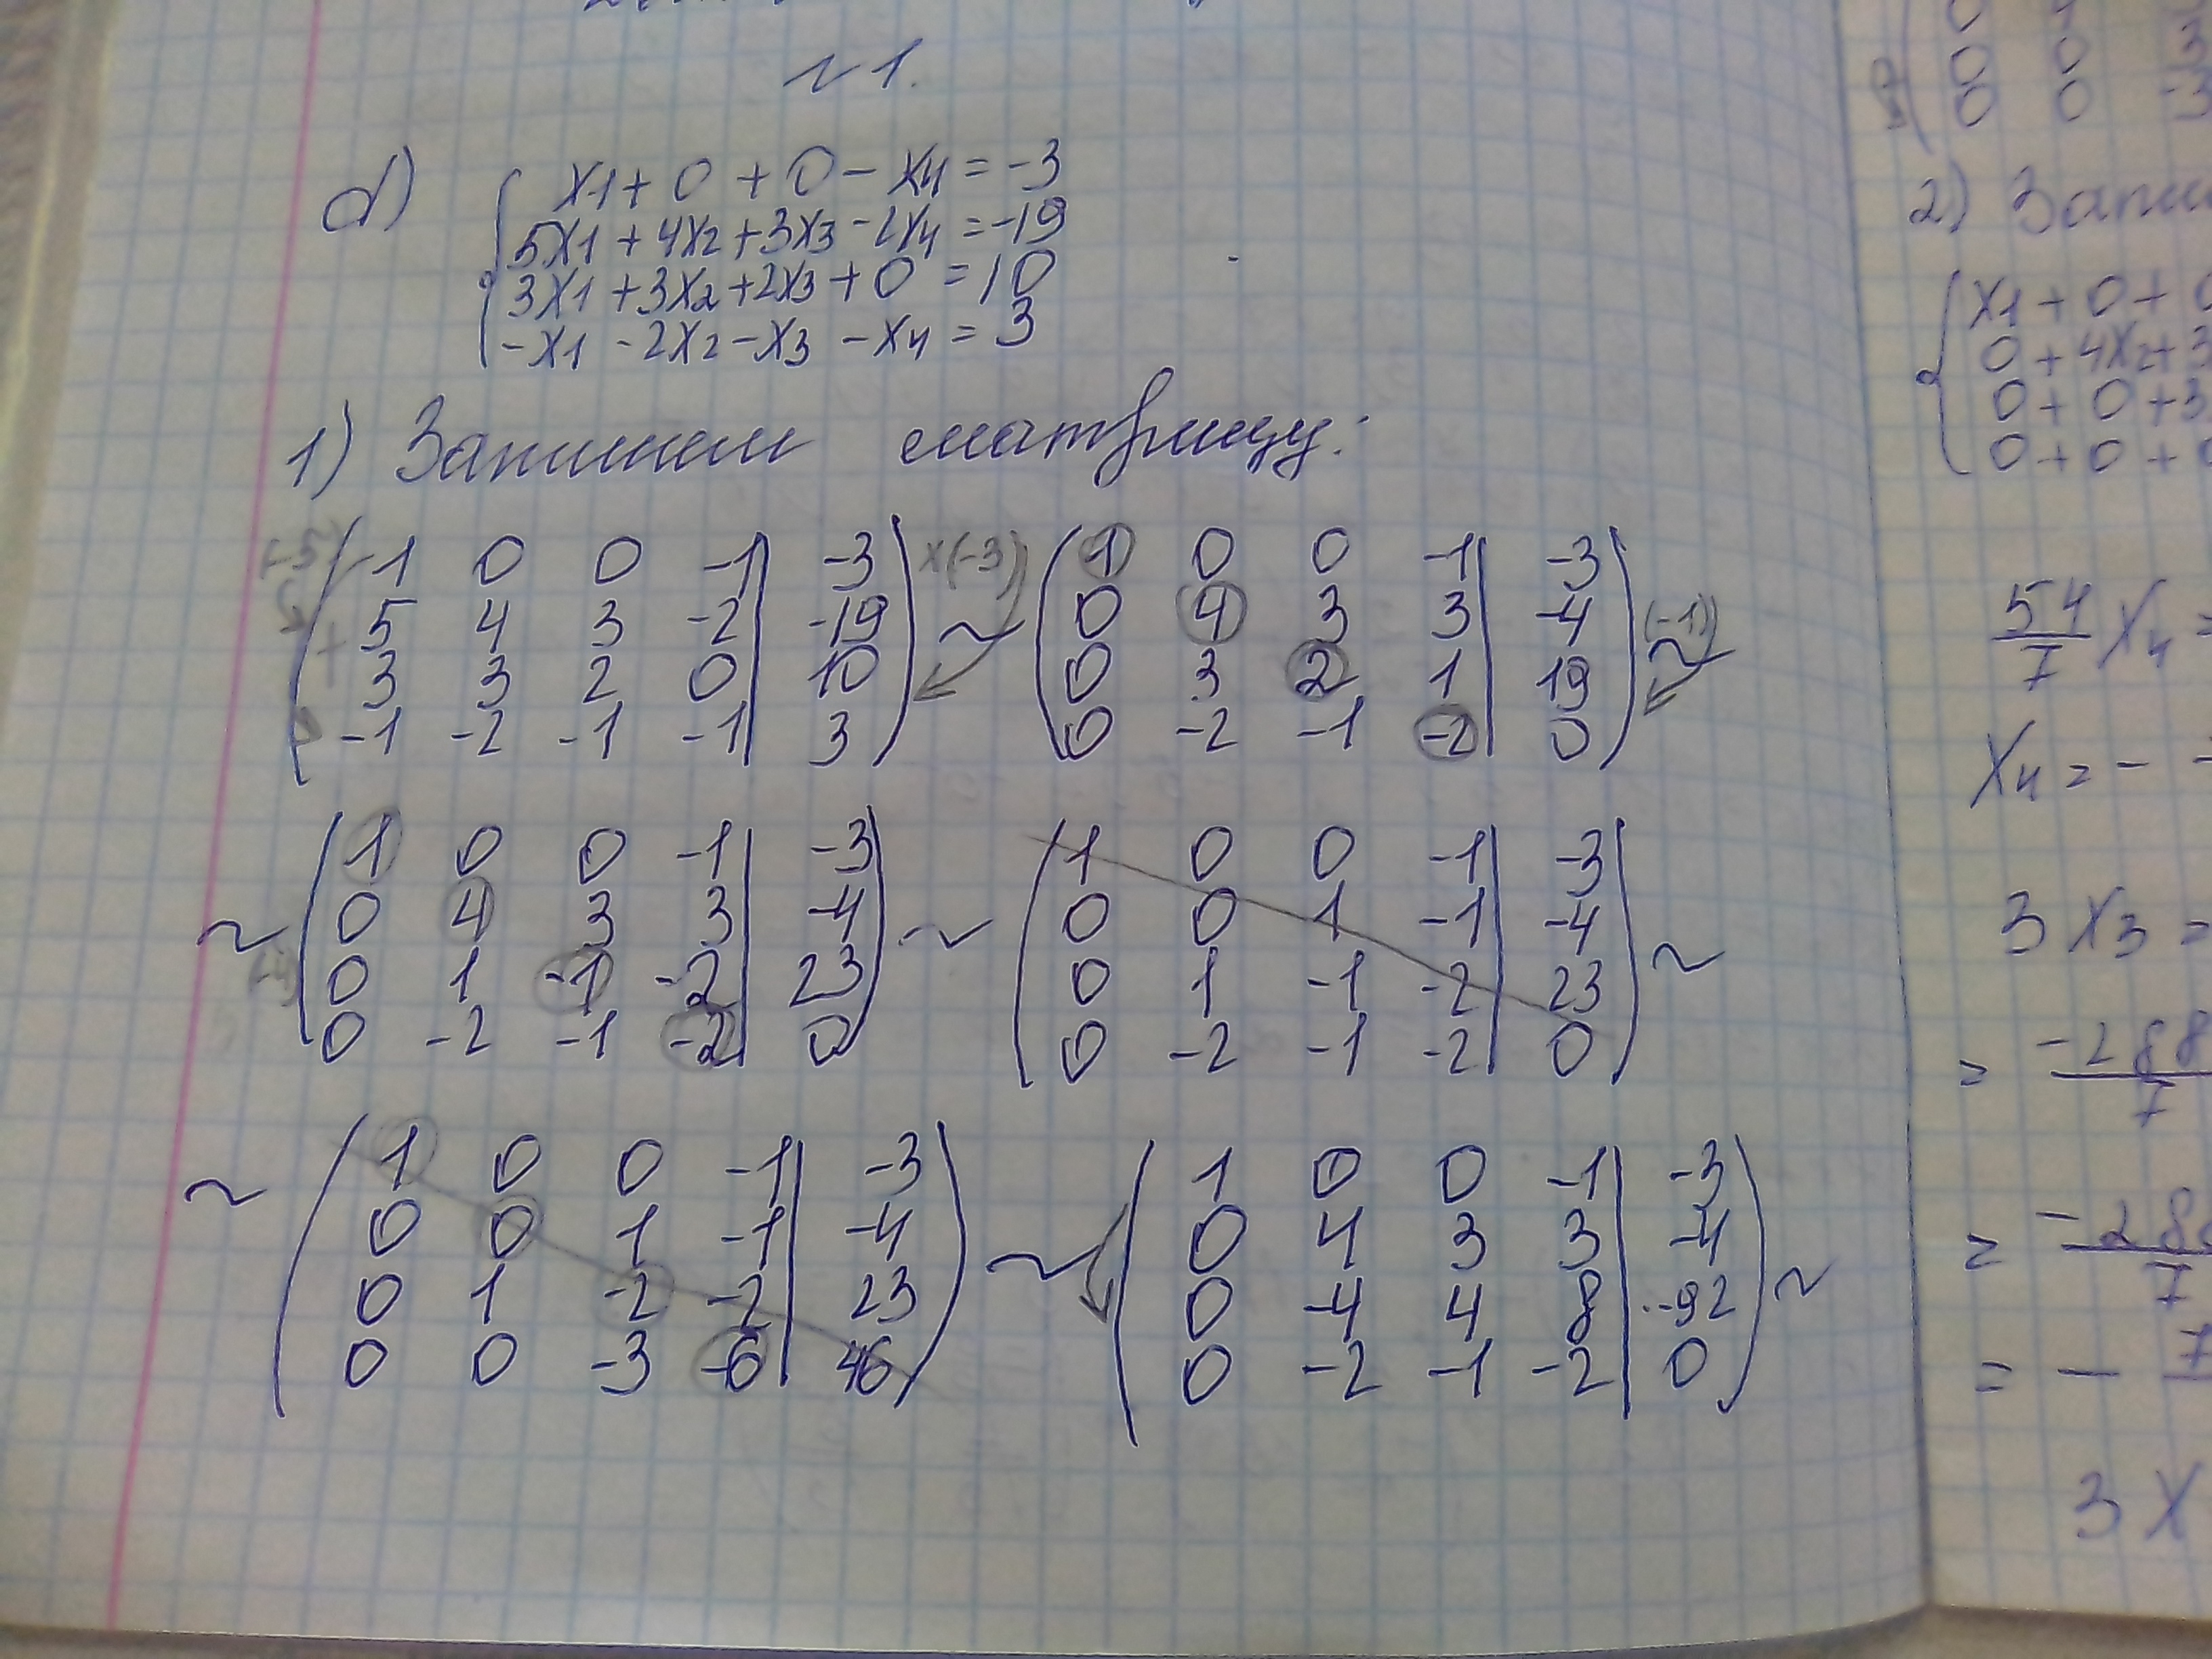 №1.
d)
x1 + 0 + 0 - x4 = -3
5x1 + 4x2 + 3x3 - 2x4 = -19
3x1 + 3x2 + 2x3 + 0 = 10
-x1 - 2x2 - x3 - x4 = 3
1) Запишем матрицу:
(-5) + x(-3) ~ (-1) ~
1 0 0 -1 | -3
5 4 3 -2 | -19
3 3 2 0 | 10
-1 -2 -1 -1 | 3
1 0 0 -1 | -3
0 4 3 3 | -4
0 3 2 1 | 19
0 -2 -1 -2 | 0
~
1 0 0 -1 | -3
0 4 3 3 | -4
0 1 -1 -2 | 23
0 -2 -1 -2 | 0
~
1 0 0 -1 | -3
0 0 1 -1 | -4
0 1 -1 -2 | 23
0 -2 -1 -2 | 0
~
~
1 0 0 -1 | -3
0 0 1 -1 | -4
0 1 -2 -2 | 23
0 0 -3 -6 | 46
~
1 0 0 -1 | -3
0 4 3 3 | -4
0 -4 4 8 | -92
0 -2 -1 -2 | 0
~
0 0 3
0 0 -3
2) Запи
x1 + 0 +
0 + 4x2 + 3
0 + 0 + 3
0 + 0 +
54/7 x4 =
x4 = -
3x3 =
= -288/7
= -28
7
= - 7
3x